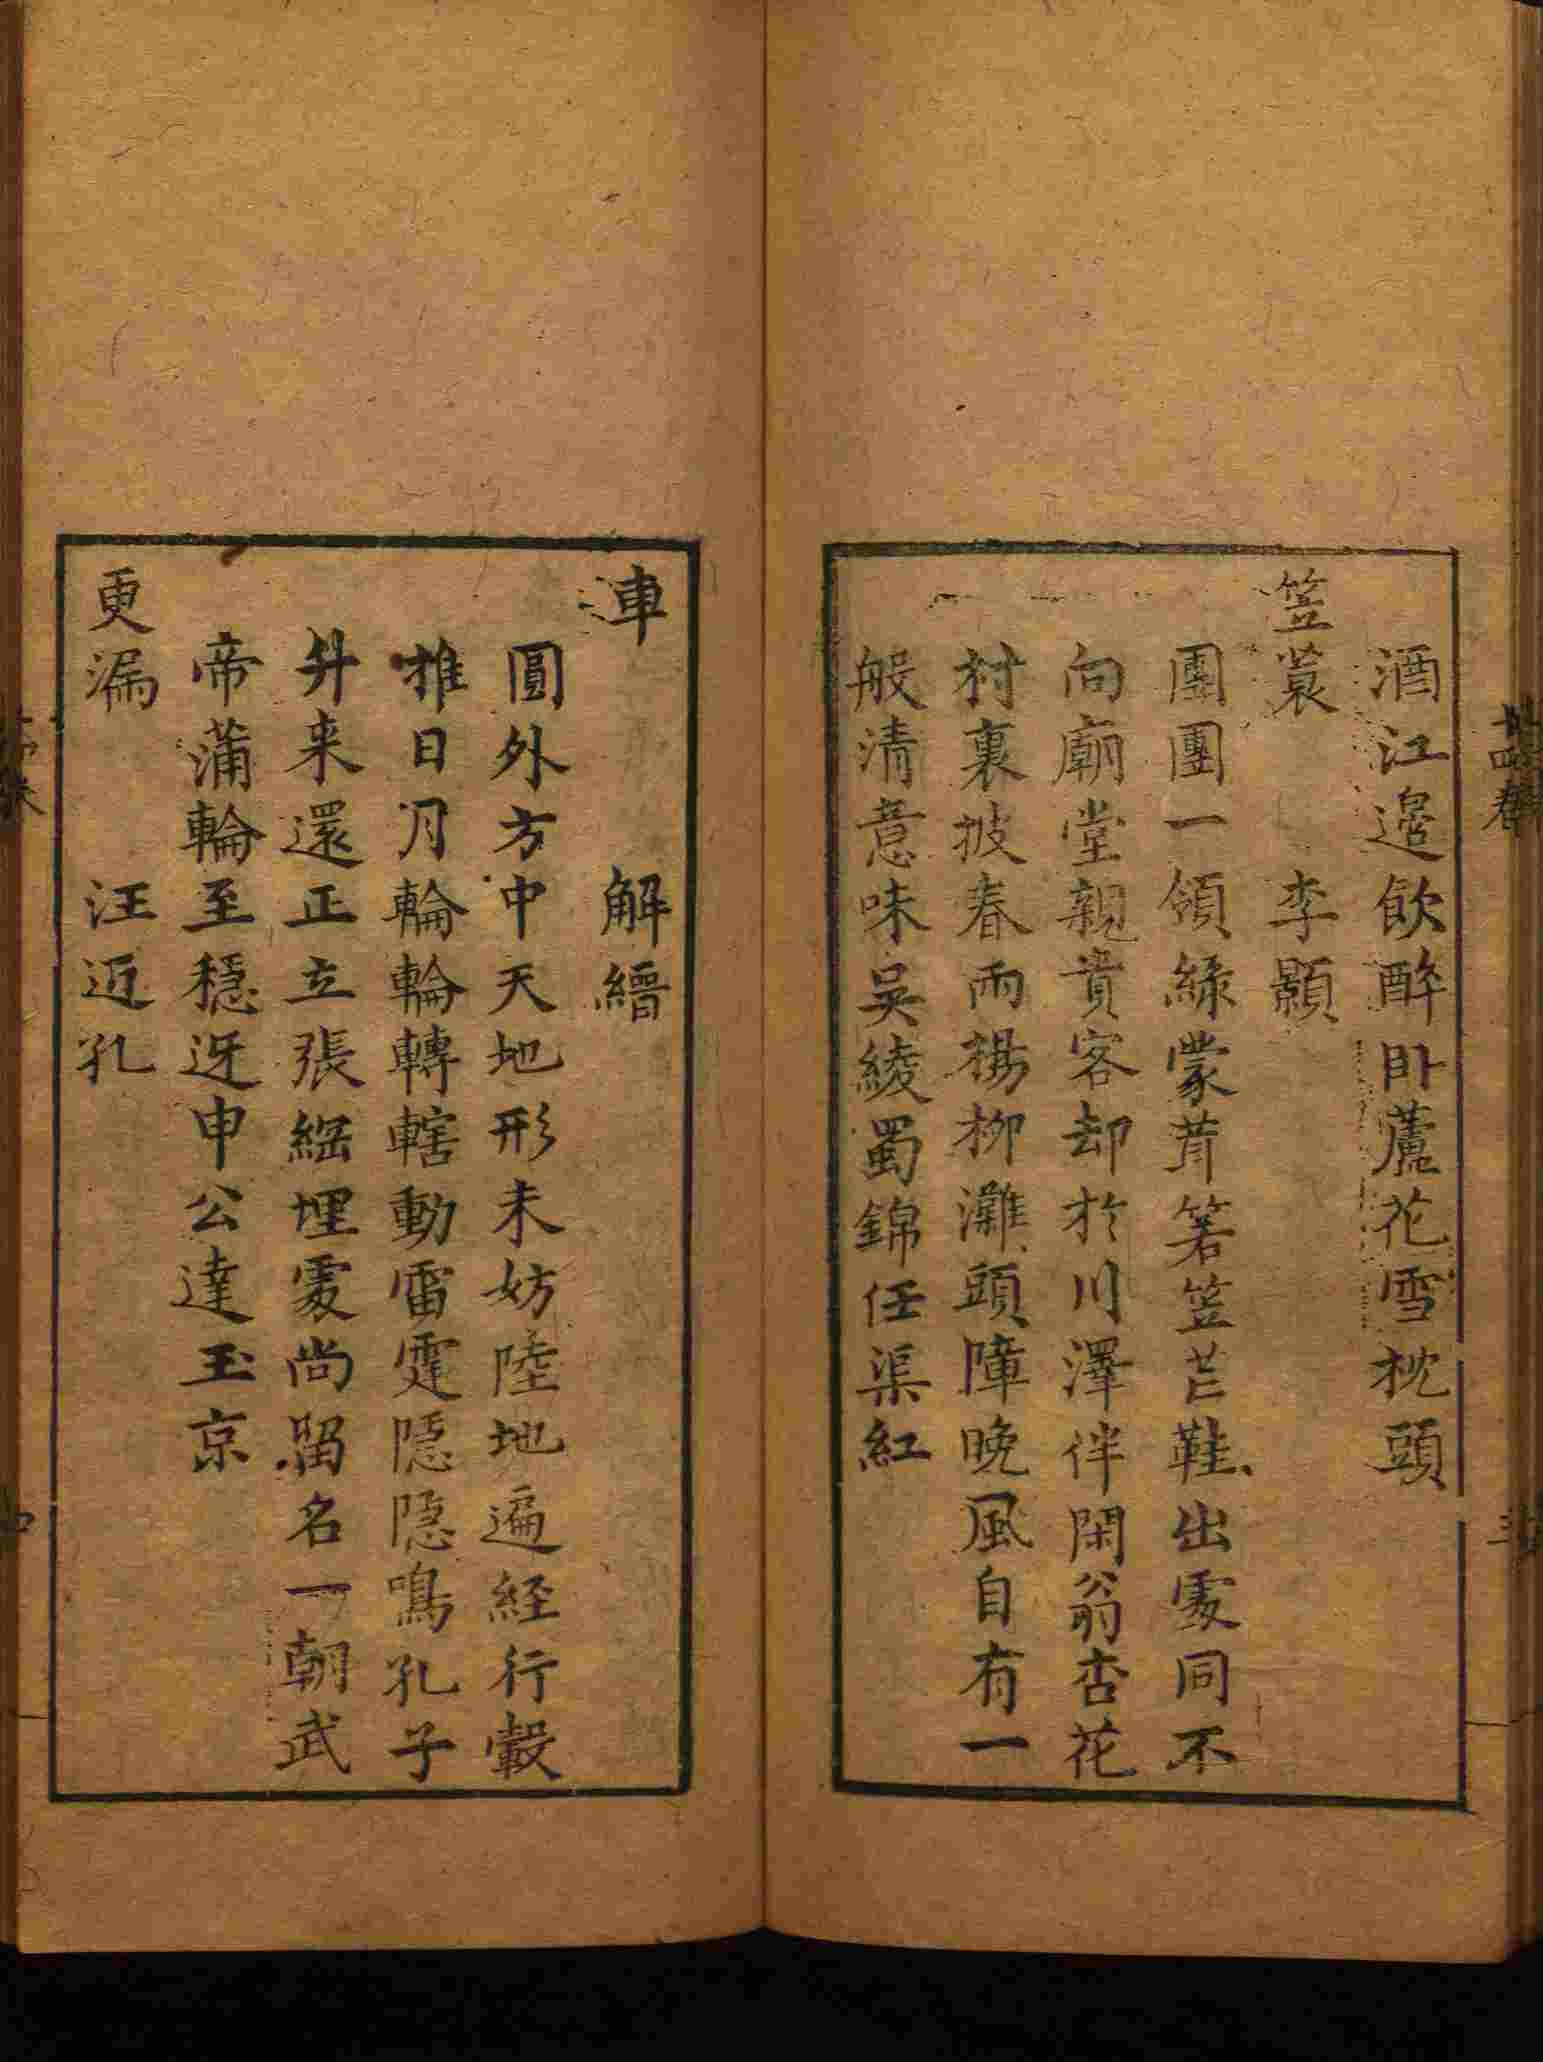 酒江邉飲醉卧蘆花雪枕頭
笠蓑　李顯
團團一領綠蒙茸箬笠芒鞋出處同不
向廟堂親貴客却於川澤伴閑翁杏花
村裏披春雨楊柳灘頭障晚風自有一
般清意味吳綾蜀錦任渠紅
車　解縉
圓外方中天地形未妨陸地遍経行轂
推日月輪輪轉轄動雷霆隱隱鳴孔子
升来還正立張綱埋處尚留名一朝武
帝蒲輪至穩迓申公達玉京
更漏　汪近孔